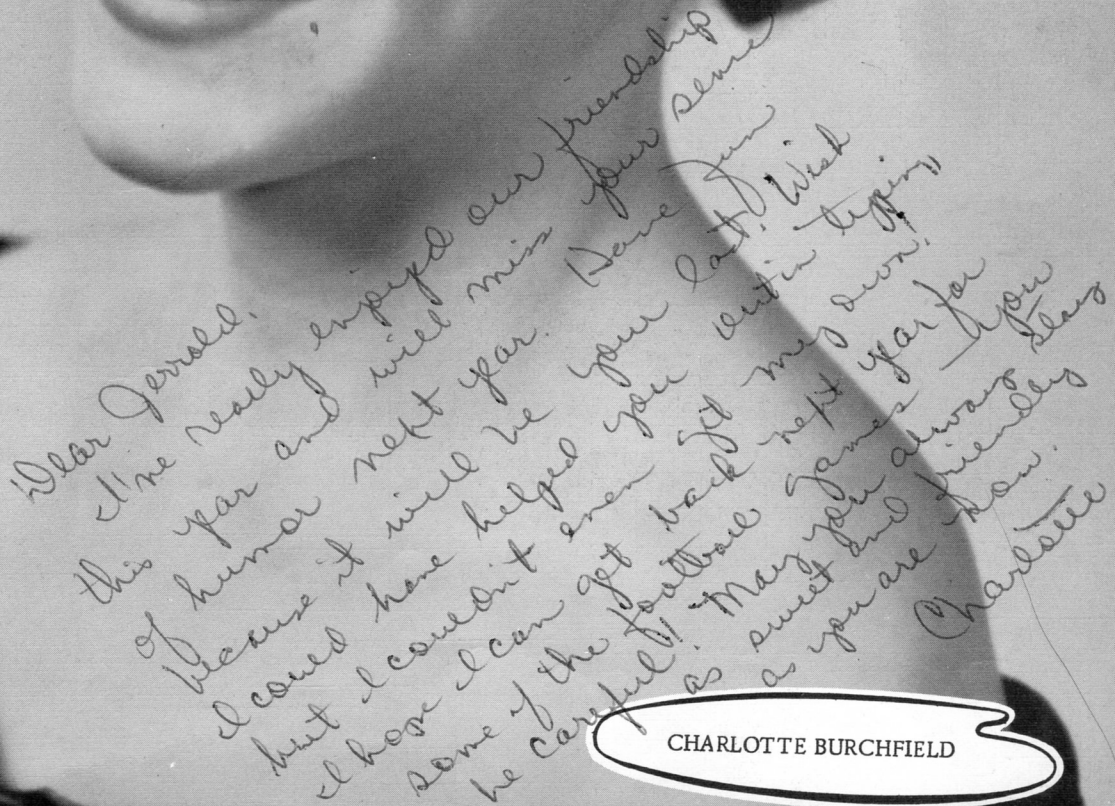 Dear Jerrold,
I've really enjoyed our friendship
this year and will miss your sense
of humor next year. Have fun
because it will be your last! Wish
I could have helped you out in typing,
but I couldn't even git my own!
I hope I can get back next year for
some of the football games — you
be careful! May you always stay
as sweet and friendly
as you are now.
Charlotte
CHARLOTTE BURCHFIELD